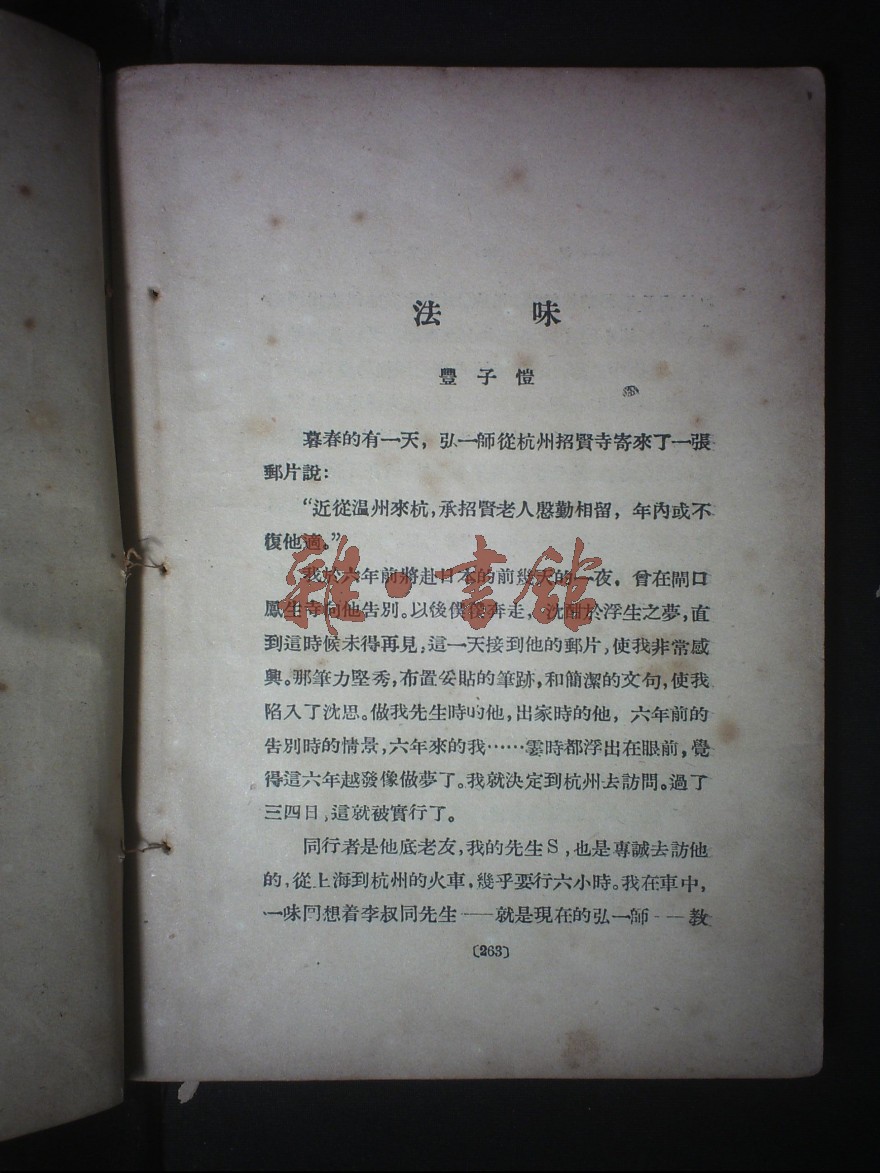 法味
豐子愷
暮春的有一天，弘一師從杭州招賢寺寄來了一張
郵片說：
“近從温州來杭，承招賢老人慇勤相留，年內或不
復他適。”
我於六年前將赴日本的前幾天的一夜，曾在閘口
鳳生寺向他告別。以後僕僕奔走，沈酣於浮生之夢，直
到這時候未得再見，這一天接到他的郵片，使我非常感
興。那筆力堅秀，布置妥貼的筆跡，和簡潔的文句，使我
陷入了沈思。做我先生時的他，出家時的他，六年前的
告別時的情景，六年來的我……霎時都浮出在眼前，覺
得這六年越發像做夢了。我就決定到杭州去訪問。過了
三四日，這就被實行了。
同行者是他底老友，我的先生S，也是專誠去訪他
的，從上海到杭州的火車，幾乎要行六小時。我在車中，
一味回想着李叔同先生——就是現在的弘一師——教
〔263〕
雜·書館